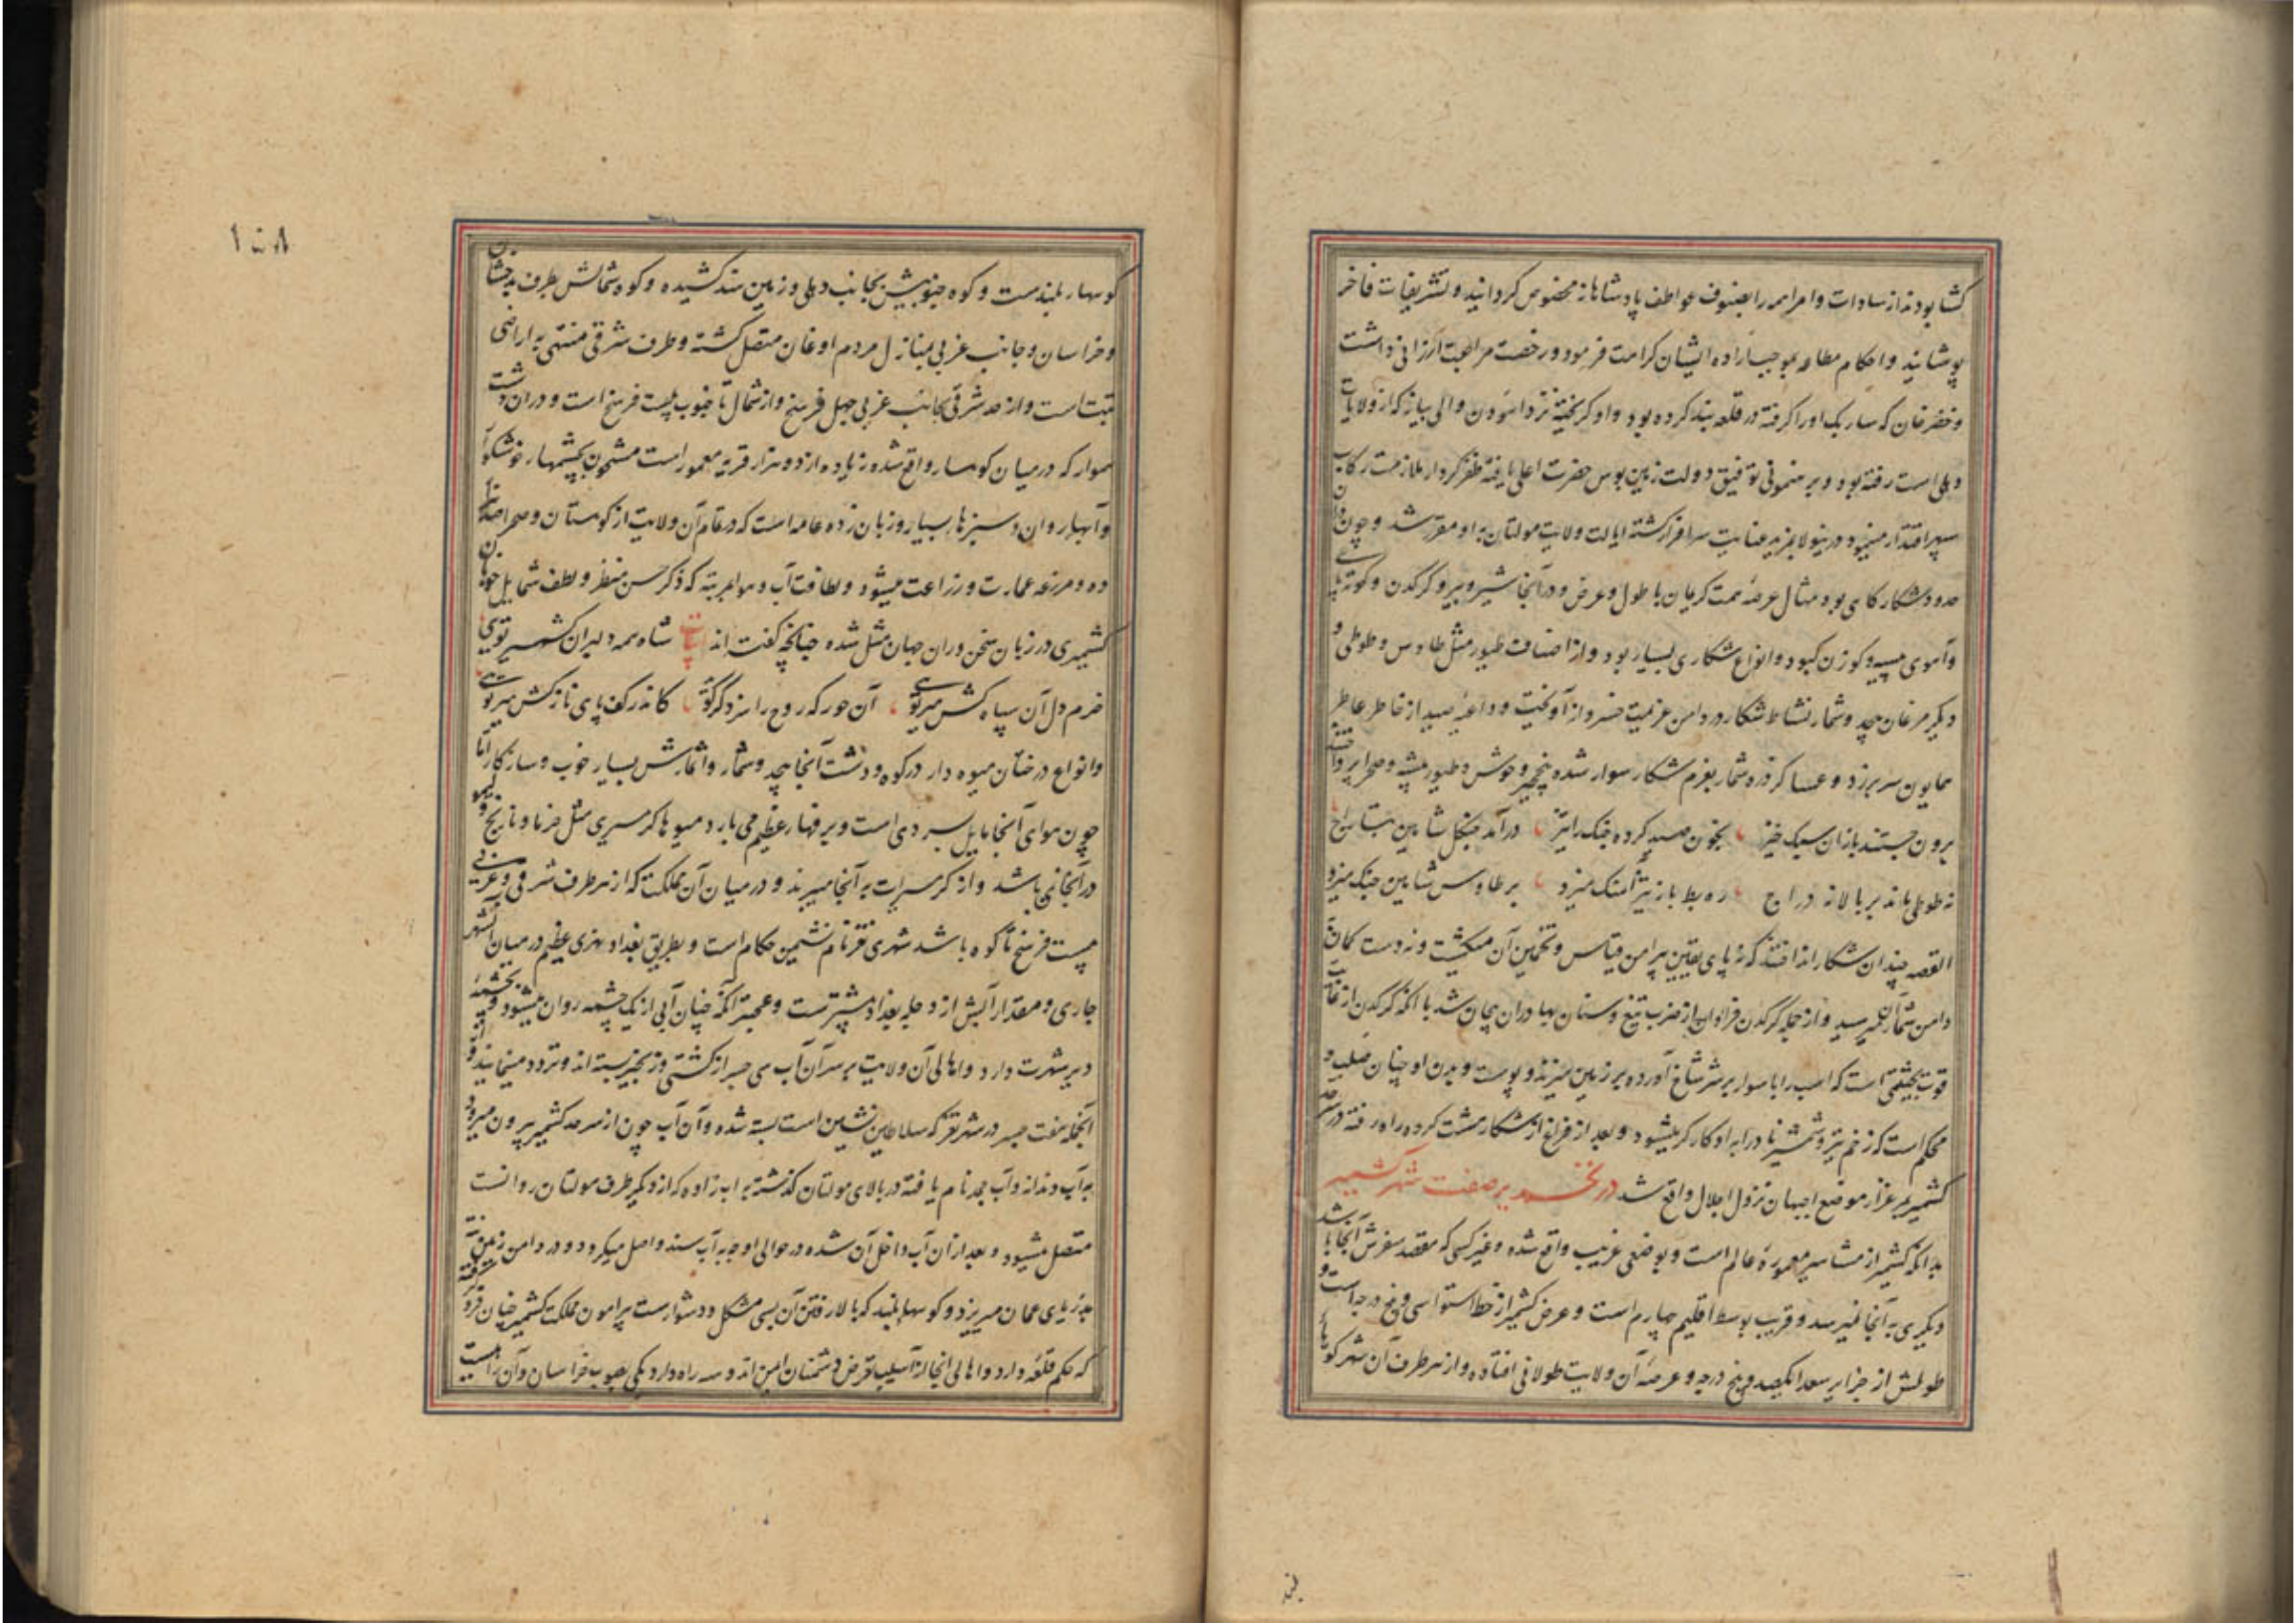 کشا بودند از سادات و امرا همه را بصنوف عواطف پادشاهانه مخصوص گردانید و تشریفات فاخر
پوشانید و احکام مطاعه بموجب اراده ایشان کرامت فرمود و رخصت مراجعت ارزانی داشت
و خضر خان که سارنک او را گرفته در قلعه بند کرده بود و او گریخته نزد اهودن والی بیانه که از ولایات
دهلی است رفته بود و بر هنمونی توفیق دولت زمین بوس حضرت اعلی یافته ظفر کردار ملازمت رکاب
سپهر اقتدار مینمود درینولا بمزید عنایت سرافراز گشته ایالت ولایت مولتان به او مقرر شد و چون دران
حدود شکارگاهی بود مثال عرصه همت کریمان با طول و عرض و در آنجا شیر و ببر و کرگدن و کوته پای
و آهوی سپید و گوزن کبود و انواع شکاری بسیار بود و از اصناف طیور مثل طاوس و طوطی و
دیگر مرغان بیحد و شمار نشاط شکار در دامن عزیمت خسروانه آویخت و داعیه صید از خاطر عاطر
همایون سر برزد و عساکر ذره شمار بعزم شکار سوار شده بنخچیر وحوش و طیور بیشه و صحرا پرداختند
برون جستند بازان سبک خیز بخون صید کرده چنک را تیز درآمد چنکل شاهین بتاراج
نه طوطی ماند بر بالا نه دراج ره بط باز تیز آهنک میزد بر طاوس شاهین چنک میزد
القصه چندان شکار انداختند که نه پای یقین پیرامن قیاس و تخمین آن میکشت و نه دست کمان
دامن شمار آن میرسید و از جمله کرگدن فراوان از ضرب تیغ و سنان بهادران بیجان شد با آنکه کرگدن از غایت
قوت بحیثیتی است که اسب را با سوار بر سر شاخ آورده بر زمین میزند و پوست و بدن او چنان صلب و
محکم است که زخم تیر و شمشیر نادرا به او کارگر میشود و بعد از فراغ از شکار مشت کرده راه رفته در سرحد
کشمیر بمرغزار موضع اجبهان نزول اجلال واقع شد در صفت شهر کشمیر
بدانکه کشمیر از مشاهیر معموره عالم است و بوضعی غریب واقع شده و غیر کسی که مقصد سفرش آنجا باشد
دیگری به آنجا نمیرسد و قریب بوسط اقلیم چهارم است و عرض کشمیر از خط استوا سی و پنج درجه است و
طولش از جزایر سعدا یکصد و پنج درجه و عرصه آن ولایت طولانی افتاده و از هر طرف آن شهر کوهای
۱۵۸
کوهسار بلندست و کوه جنوبیش بجانب دهلی و زمین هند کشیده و کوه شمالش بطرف بدخشان
و خراسان و جانب غربی بمنازل مردم اوغان متصل گشته و طرف شرقی منتهی به اراضی
تبت است و از حد شرقی بجانب غربی چهل فرسخ و از شمال تا جنوب بیست فرسخ است و در ان دشت
هموار که در میان کوهسار واقع شده زیاده از دو هزار قریه معمور است مشحون بچشمهار خوشکوار
و آبهار روان و سبزها بسیار و زبان زده عامه است که در تمام آن ولایت از کوهستان و صحرا صد هزار
ده و مزرعه عمارت و زراعت میشود و لطافت آب و هوا بمرتبه که ذکر حسن منظر و لطف شمایل خوبان
کشمیری در زبان سخن وران جهان مثل شده چنانچه گفته اند ابیات شاه همه دلبران کشمیر تویی
خرم دل آن سپاه کش میر تویی آن حور که روح را سزد گر گوی کاندر کف پای نازکش میر تویی
و انواع درختان میوه دار در کوه و دشت آنجا بیحد و شمار و اثمارش بسیار خوب و سازگار اما
چون هوای آنجا مایل بسردی است و برفهار عظیم می بارد میوهاء کرمسیری مثل خرما و نارنج و لیمو
در آنجا نمی باشد و از کرمسیرات به آنجا میبرند و در میان آن مملکت که از هر طرف شرقی و غربی
بیست فرسخ تا کوه باشد شهری نغز نام نشیمن حکام است و بطریق بغداد نهری عظیم در میان آن شهر
جاری و مقدار آبش از دجله بغداد بیشترست و عجبتر آنکه چنان آبی از یک چشمه روان میشود و بچشمه
دیر شهرت دارد و اهالی آن ولایت بر سر آن آب سی جسر از کشتی و زنجیر بسته اند و تردد مینمایند و از
آنجمله هفت جسر در شهر نغز که سلاطین نشین است بسته شده و آن آب چون از سرحد کشمیر بیرون میرود
به آب دندانه و آب جمد نام یافته در بالای مولتان گذشته براب زاوه که از دیگر طرف مولتان روانست
متصل میشود و بعد از ان آب داخل آن شده در حوالی اوجه به آب سند واصل میکردد و در دامن زمین تته
بدریای عمان میریزد و کوهها بلند که بالا رفتن آن بسی مشکل و دشوارست پیرامون مملکت کشمیر چنان فرو گرفته
که حکم قلعه دارد و اهالی آنجا از آسیب تعرض دشمنان ایمن اند و سه راه دارد یکی بصوب خراسان و آن راهیست